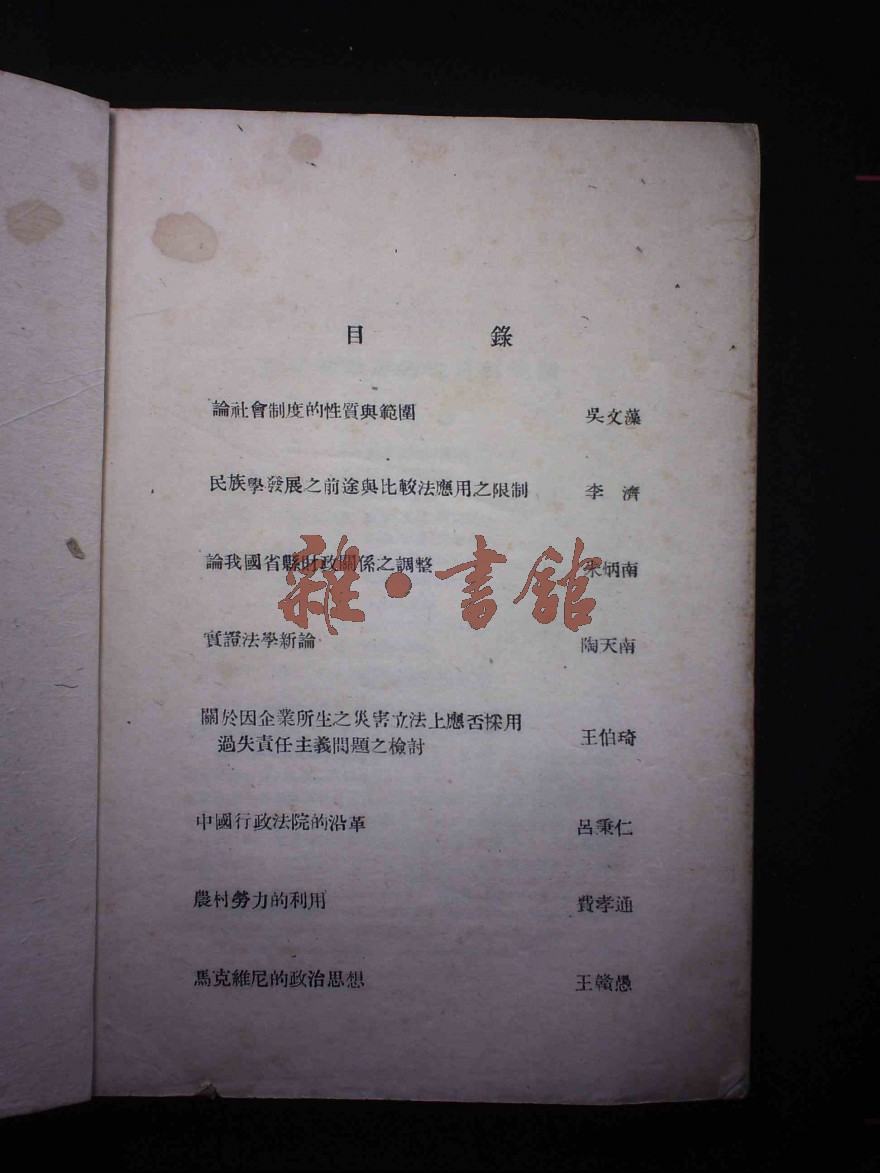 目 錄
論社會制度的性質與範圍 吳文藻
民族學發展之前途與比較法應用之限制 李濟
論我國省縣財政關係之調整 朱炳南
實證法學新論 陶天南
關於因企業所生之災害立法上應否採用
過失責任主義問題之檢討 王伯琦
中國行政法院的沿革 呂秉仁
農村勞力的利用 費孝通
馬克維尼的政治思想 王贛愚
雜·書館